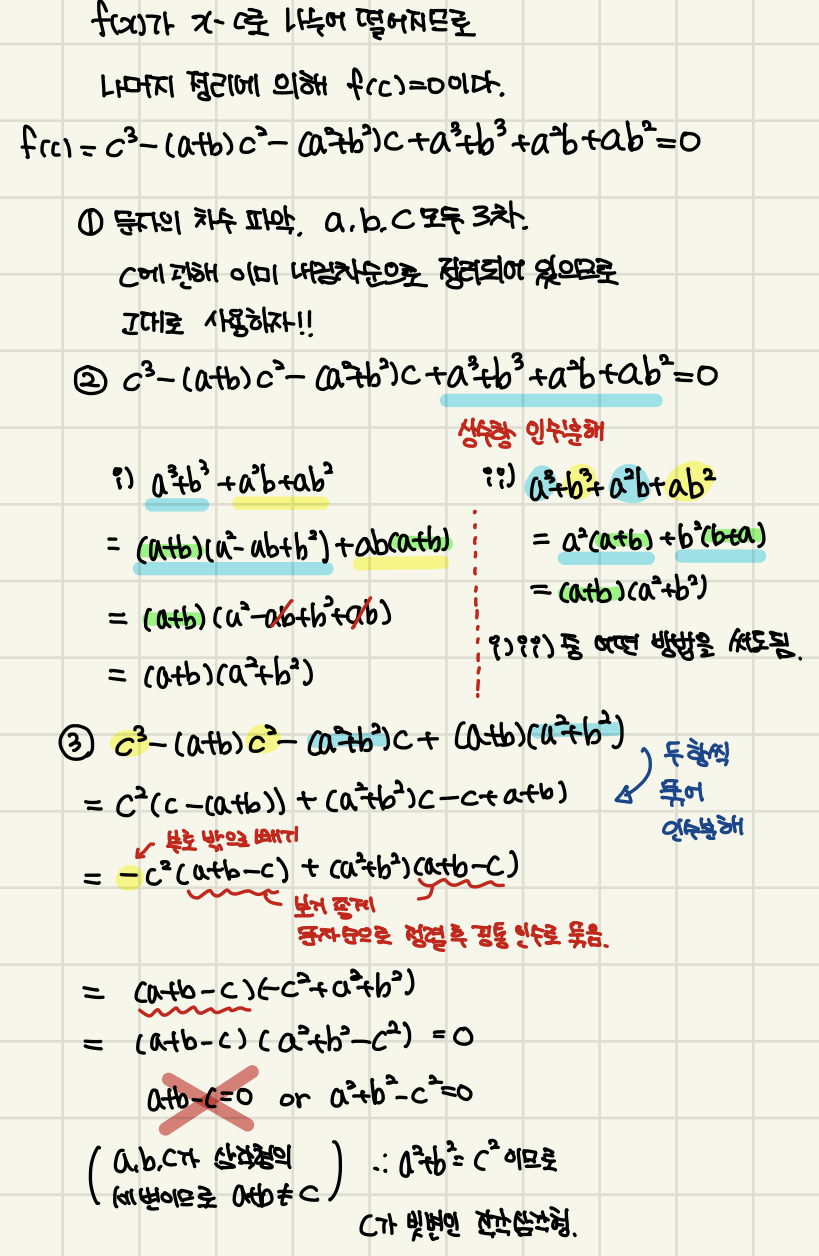 f(x)가 x-c로 나누어 떨어지므로
나머지 정리에 의해 f(c)=0이다.
f(c) = c³-(a+b)c²-(a²+b²)c+a³+b³+a²b+ab²=0
① 문자의 차수 파악. a,b,c 모두 3차.
c에 관해 이미 내림차순으로 정리되어 있으므로
그대로 사용하자!!
② c³-(a+b)c²-(a²+b²)c+a³+b³+a²b+ab²=0
상수항 인수분해
i) a³+b³+a²b+ab²
= (a+b)(a²-ab+b²)+ab(a+b)
= (a+b)(a²-ab+b²+ab)
= (a+b)(a²+b²)
ii) a³+b³+a²b+ab²
= a²(a+b)+b²(b+a)
= (a+b)(a²+b²)
i) ii) 중 어떤 방법을 써도됨.
③ c³-(a+b)c²-(a²+b²)c+(a+b)(a²+b²)
두 항씩
묶어
인수분해
= c²(c-(a+b))+(a²+b²)c-c+a+b)
부호 밖으로 빼기
= -c²(a+b-c)+(a²+b²)(a+b-c)
보기 좋게
문자순으로 정렬 후 공통인수로 묶음.
= (a+b-c)(-c²+a²+b²)
= (a+b-c)(a²+b²-c²) =0
a+b-c=0 or a²+b²-c²=0
(a,b,c가 삼각형의
세변이므로 a+b≠c)
∴ a²+b²=c² 이므로
c가 빗변인 직각삼각형.